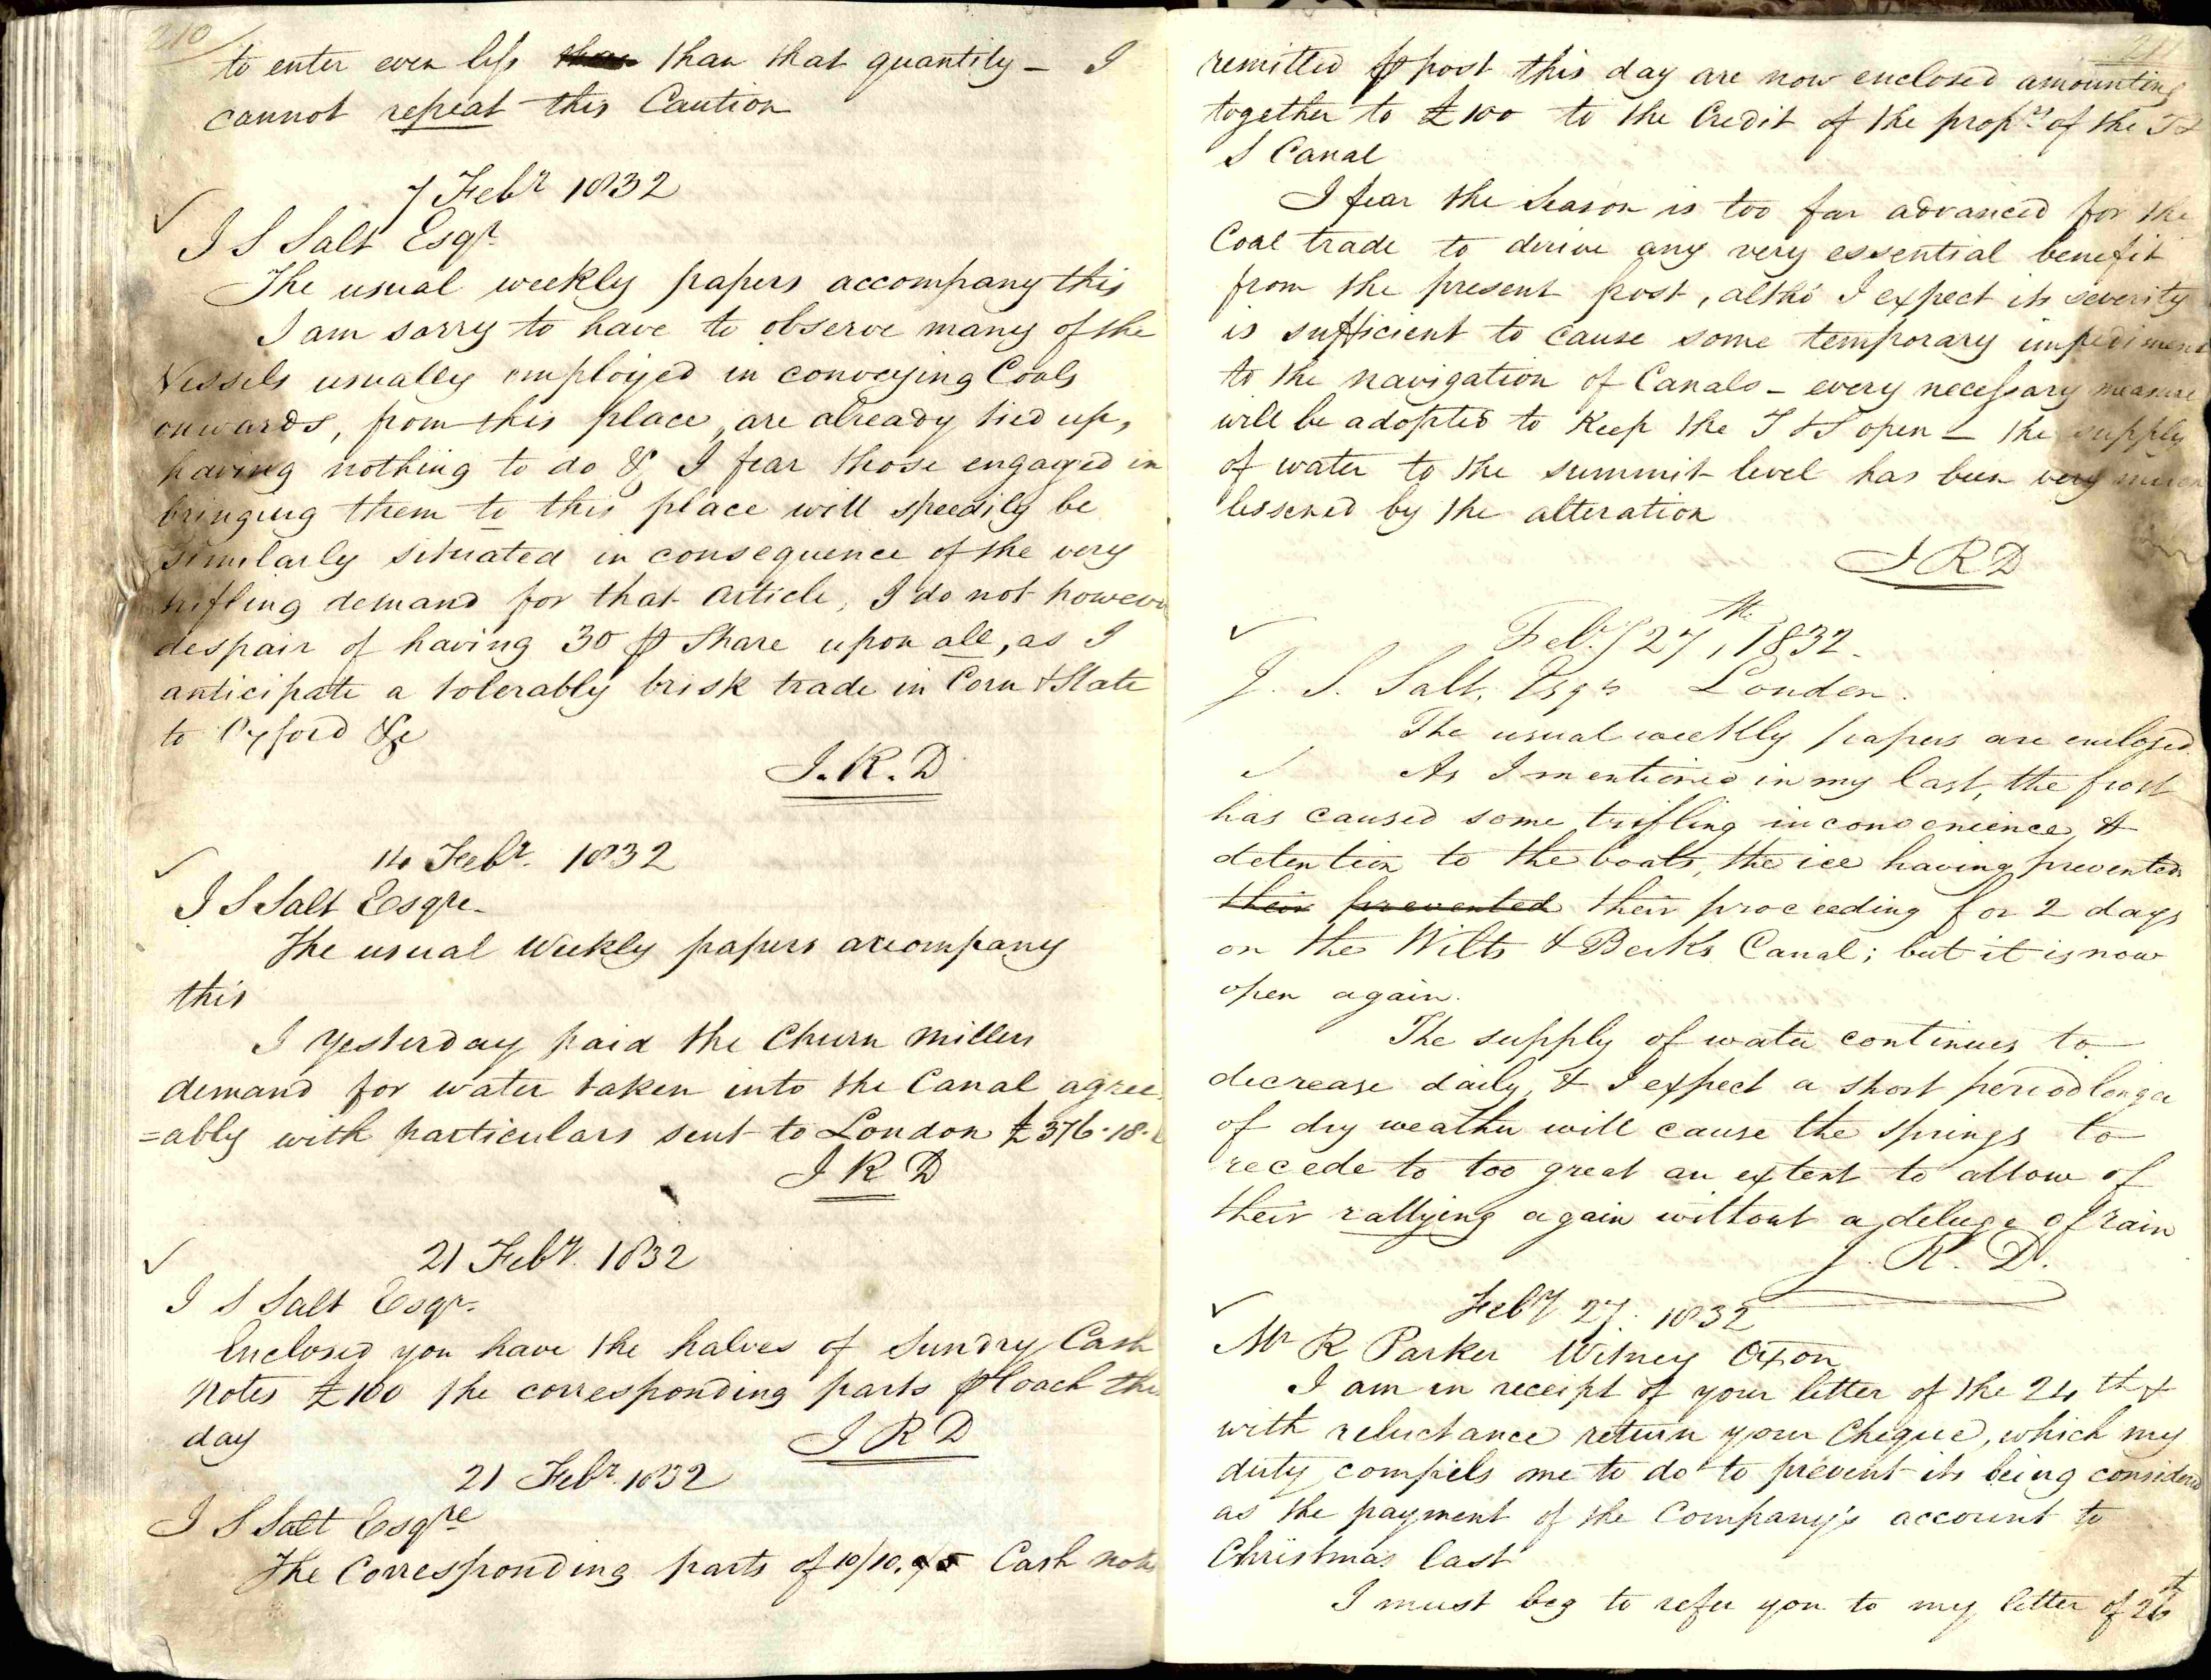 210
to enter even less than that quantity – I
cannot repeat this Caution
7 Febr 1832
✓
I S Salt Esqr.
The usual weekly papers accompany this
I am sorry to have to observe many of the
Vessels usually employed in conveying Coals
onwards, from this place, are already tied up,
having nothing to do & I fear those engaged in
bringing them to this place will speedily be
similarly situated in consequence of the very
trifling demand for that article, I do not however
despair of having 30 ⅌ Share upon all, as I
anticipate a tolerably brisk trade in Corn & Slate
to Oxford &c
J.R.D
14 Febr. 1832
✓
I S Salt Esqre.
The usual Weekly papers accompany
this
I Yesterday paid the Churn Millers
demand for water taken into the Canal agree
=ably with particulars sent to London £376.18.
J R D
21 Feby. 1832
✓
I S Salt Esqr.
Enclosed you have the halves of Sundry Cash
Notes £100 the corresponding parts ⅌ Coach the
day
J R D
21 Febr. 1832
I S Salt Esqre
The Corresponding parts of 10/10. Cash notes
211
remitted ⅌ post this day are now enclosed amounting
together to £100 to the Credit of the proprs of the T &
S Canal
I fear the Season is too far advanced for the
Coal trade to derive any very essential benefit
from the present frost, altho' I expect its severity
is sufficient to cause some temporary impediment
to the navigation of Canals – every necessary measure
will be adopted to keep the T & S open – the supply
of water to the summit level has been very much
lessened by the alteration
J R D
✓
Feby 27th, 1832.
J. S. Salt, Esqr London.
The usual weekly papers are enclosed.
✓ As I mentioned in my last, the frost
has caused some trifling inconvenience, &
detention to the boats, the ice having prevented
their prevented their proceeding for 2 days
on the Wilts & Berks Canal; but it is now
open again.
The supply of water continues to
decrease daily, & I expect a short period longer
of dry weather will cause the springs to
recede to too great an extent to allow of
their rallying again without a deluge of rain
J. R. D.
Feby 27. 1832
✓
Mr R Parker Witney Oxon
I am in receipt of your letter of the 24th &
with reluctance return your Cheque, which my
duty compels me to do to prevent its being considered
as the payment of the Company's account to
Christmas last
I must beg to refer you to my letter of